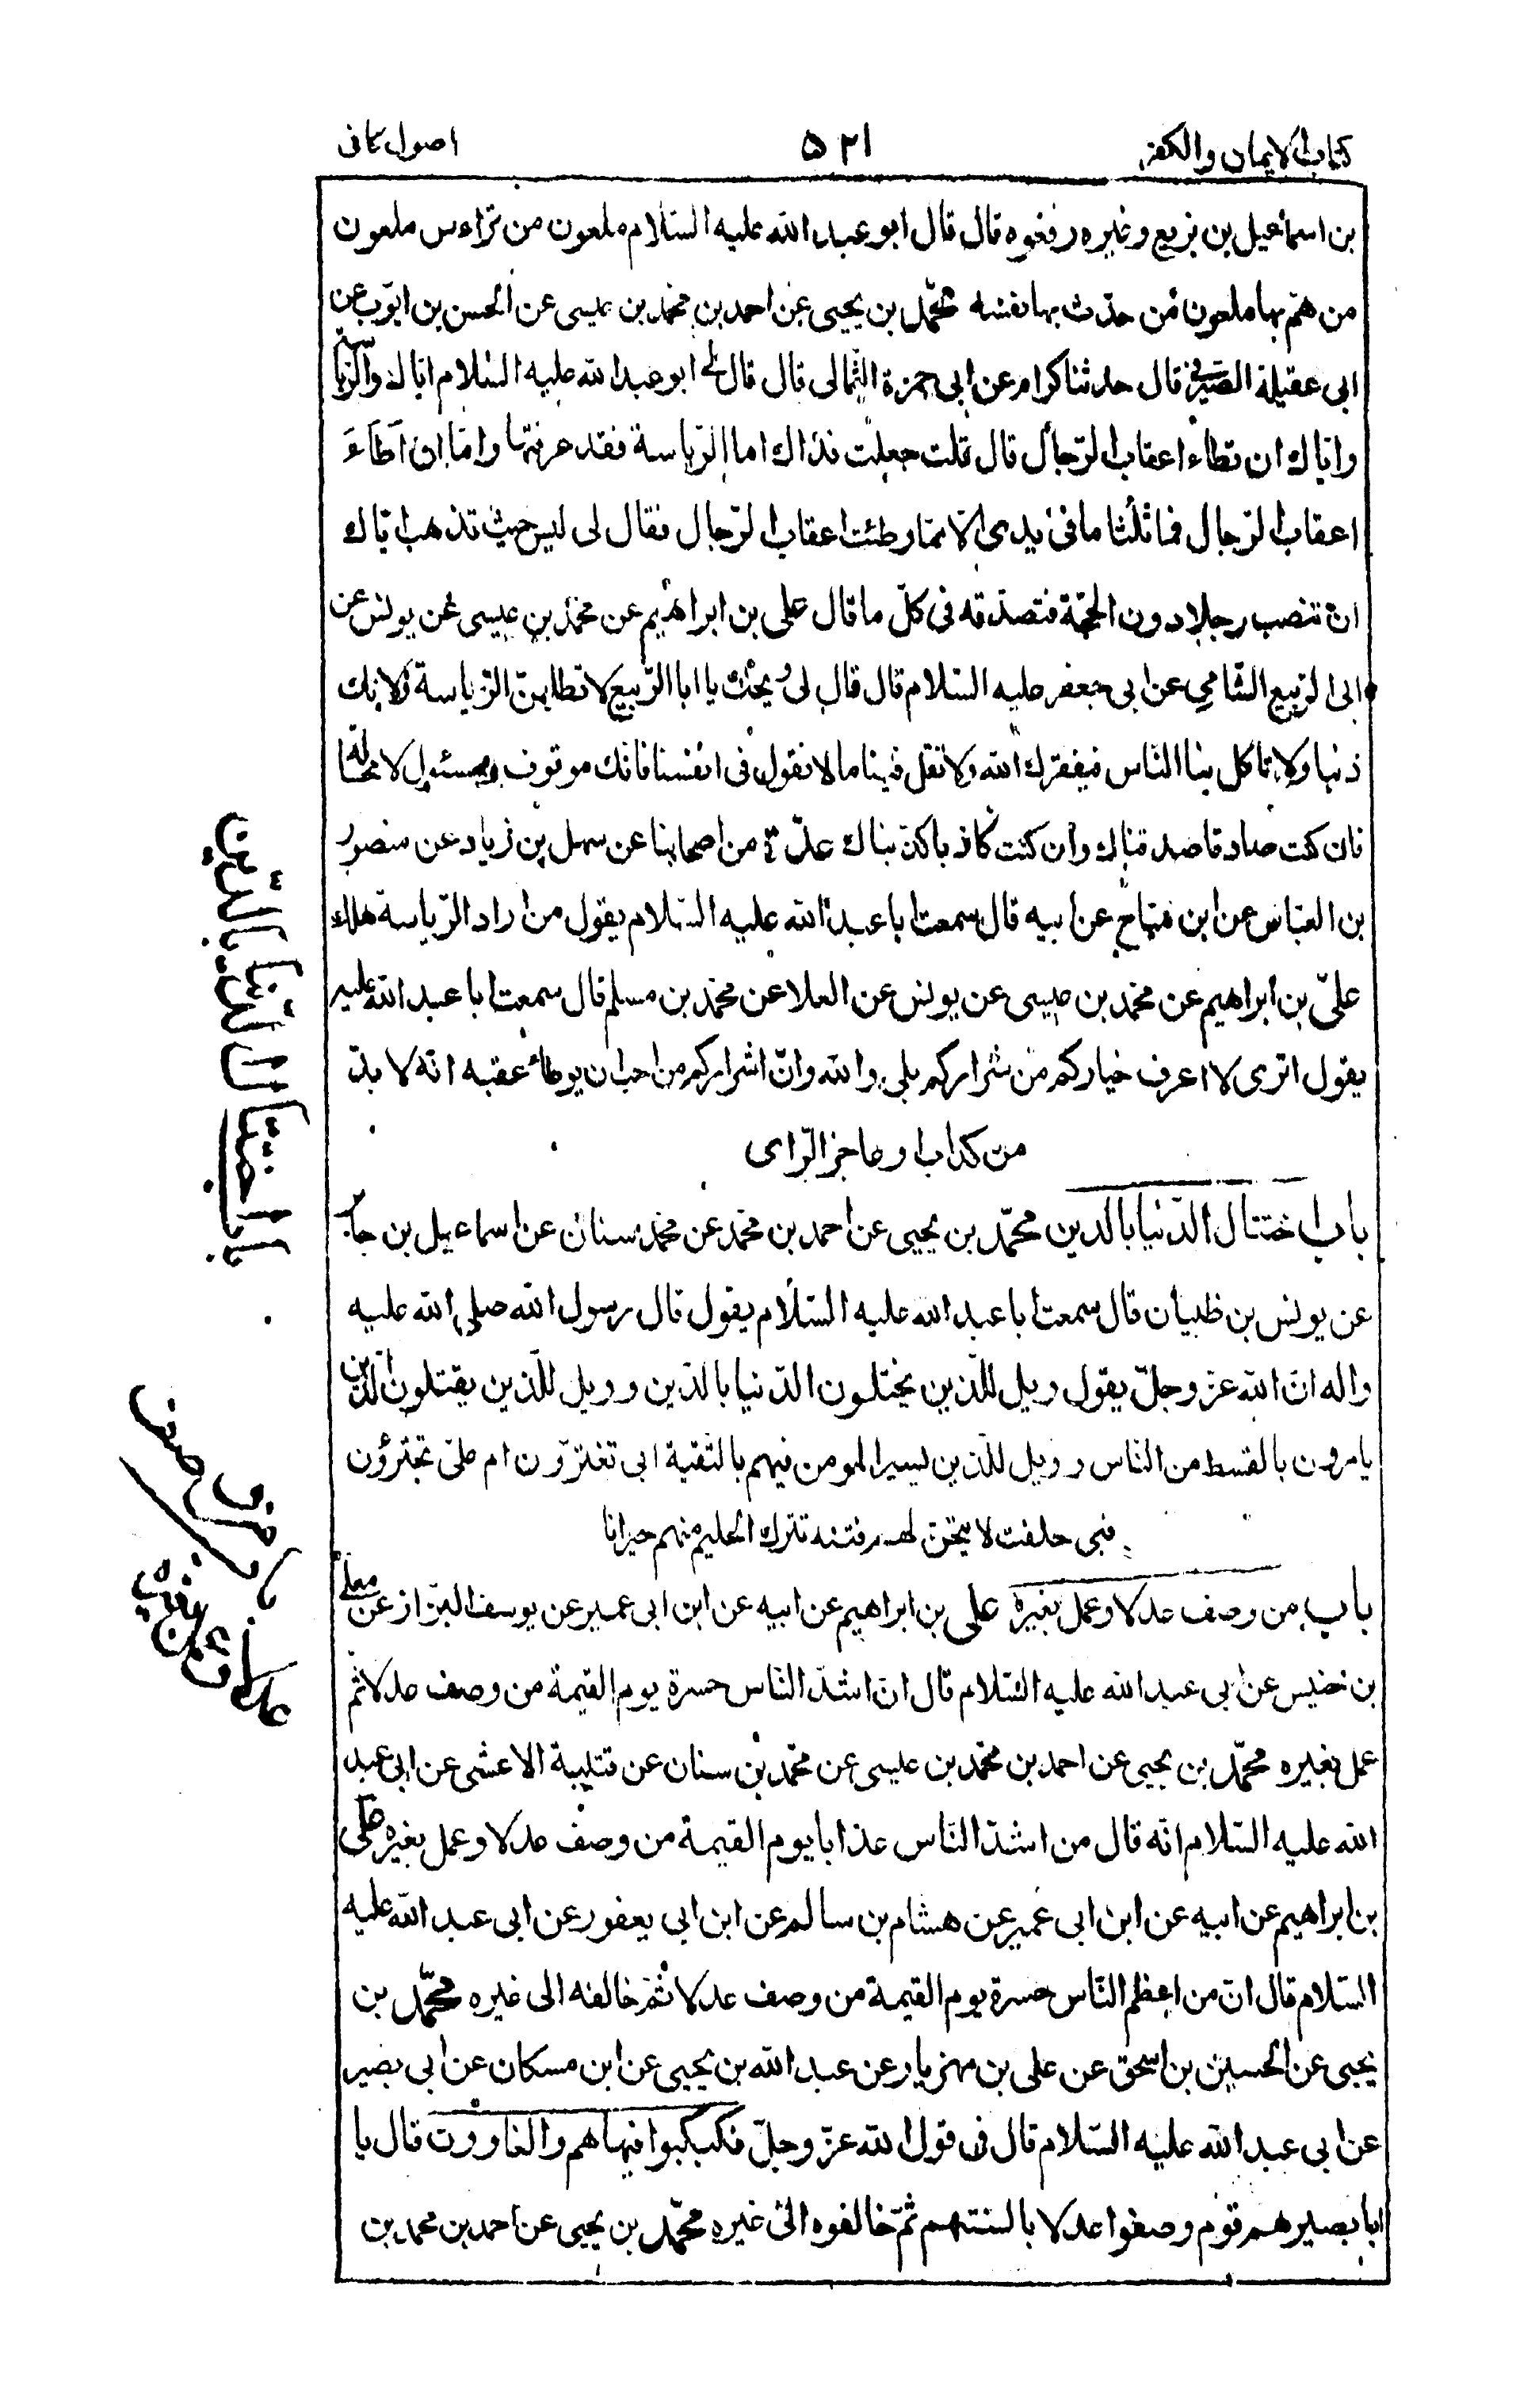 كتاب الايمان والكفر ٥٢١ اصول كافى
بن اسماعيل بن بزيع وغيره رفعوه قال قال ابو عبد الله عليه السّلام ملعون من تراءس ملعون
من همّ بها ملعون من حدّث بها نفسه محمّد بن يحيى عن احمد بن محمّد بن عيسى عن الحسن بن ايّوب عن
ابى عقيلة الصيرفى قال حدثنا كرام عن ابى حمزة الثّمالى قال قال لى ابو عبد الله عليه السّلام اياك والرّياسة
وايّاك ان تطاء اعقاب الرّجال قال قلت جعلت فداك اما الرّياسة فقد عرفتها وامّا ان اَطَاءَ
اعقاب الرّجال فما ثلثا ما فى يدى الّا ممّا وطئت اعقاب الرّجال فقال لى ليس حيث تذهب ايّاك
ان تنصب رجلا دون الحجّة فتصدّقه فى كلّ ما قال على بن ابراهيم عن محمّد بن عيسى عن يونس عن
ابى الربيع الشّامى عن ابى جعفر عليه السّلام قال قال لى ويحك يا ابا الرّبيع لا تطلبنّ الرّياسة ولا تك
ذنبا ولا تاكل بنا النّاس فيفقرك الله ولا تقل فينا ما لا نقول فى انفسنا فانّك موقوف ومسئول لا محالة
فان كنت صادقا صدقناك وان كنت كاذبا كذّبناك عدّة من اصحابنا عن سهل بن زياد عن منصور
بن العبّاس عن ابن ميّاح عن ابيه قال سمعت ابا عبد الله عليه السّلام يقول من اراد الرّياسة هلك
علىّ بن ابراهيم عن محمّد بن عيسى عن يونس عن العلا عن محمّد بن مسلم قال سمعت ابا عبد الله عليه
يقول اترى لا اعرف خياركم من شراركم بلى والله وانّ اشراركم من احب ان يوطأ عقبه انّه لا بدّ
من كذاب او عاجز الرّاى
باب اختتال الدّنيا بالدين محمّد بن يحيى عن احمد بن محمّد عن محمّد سنان عن اسماعيل بن جابر
عن يونس بن ظبيان قال سمعت ابا عبد الله عليه السّلام يقول قال رسول الله صلى الله عليه
واله انّ الله عزّ وجلّ يقول ويل للّذين يختلون الدّنيا بالدّين وويل للّذين يقتلون الّذين
يامرون بالقسط من النّاس وويل للّذين يسير المومن فيهم بالتّقية ابى تغترّون ام علىّ تجترؤن
فبى حلفت لا تيحنّ لهم فتنه تترك الحليم منهم حيرانا
باب من وصف عدلا وعمل بغيره على بن ابراهيم عن ابيه عن ابن ابى عمير عن يوسف البزّاز عن معلى
بن خنيس عن ابى عبد الله عليه السّلام قال انّ اشدّ النّاس حسرة يوم القيمة من وصف عدلا ثمّ
عمل بغيره محمّد بن يحيى عن احمد بن محمّد بن عليسى عن محمّد بن سنان عن قتيبة الاعشى عن ابى عبد
الله عليه السّلام انّه قال من اشدّ النّاس عذابا يوم القيمة من وصف عدلا وعمل بغيره على
بن ابراهيم عن ابيه عن ابن ابى عمير عن هشام بن سالم عن ابن ابى يعفور عن ابى عبد الله عليه
السّلام قال انّ من اعظم النّاس حسرة يوم القيمة من وصف عدلا ثمّ خالفه الى غيره محمّد بن
يحيى عن الحسين بن اسحق عن على بن مهزيار عن عبد الله بن يحيى عن ابن مسكان عن ابى بصير
عن ابى عبد الله عليه السّلام قال فى قول الله عزّ وجلّ فكبكبوا فيها هم والغاوون قال يا
ابا بصير هم قوم وصفوا عدلا بالسنتهم ثمّ خالفوه الى غيره محمّد بن يحيى عن احمد بن محمد بن
باب اختتال الدّنيا بالدّين
باب من وصف
عدلا وعمل بغيره